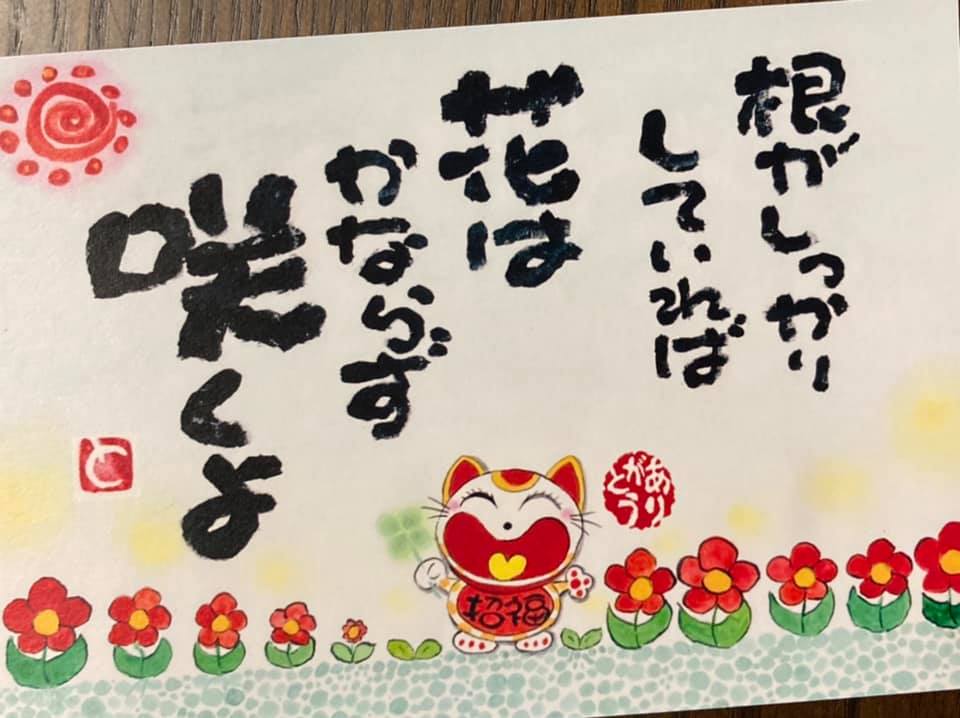 根がしっかり
していれば
花は
かならず
咲くよ
と
ありがとう
招福